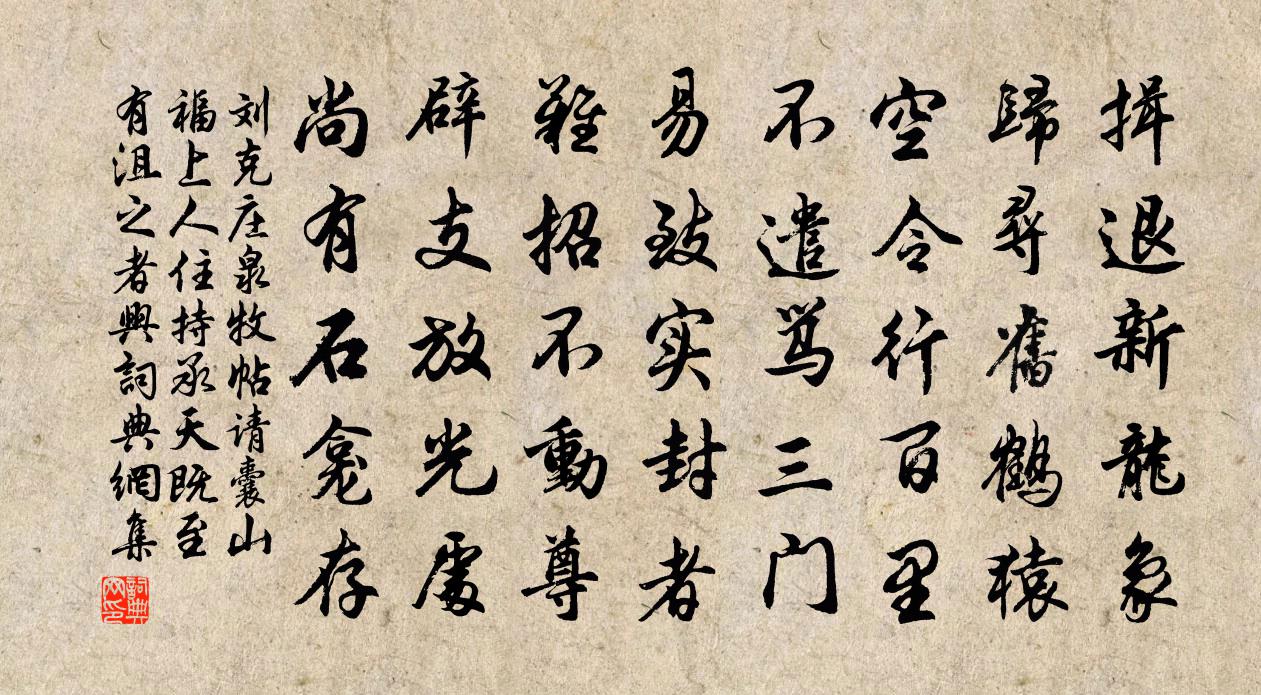 揖退新龍象
歸尋舊鶴猿
空令行百里
不遣骂三门
易致实封者
難招不動尊
辟支放光處
尚有石龛存
刘克庄泉牧帖请囊山
福上人住持承天既至
有沮之者興詞典網集
詞典网印